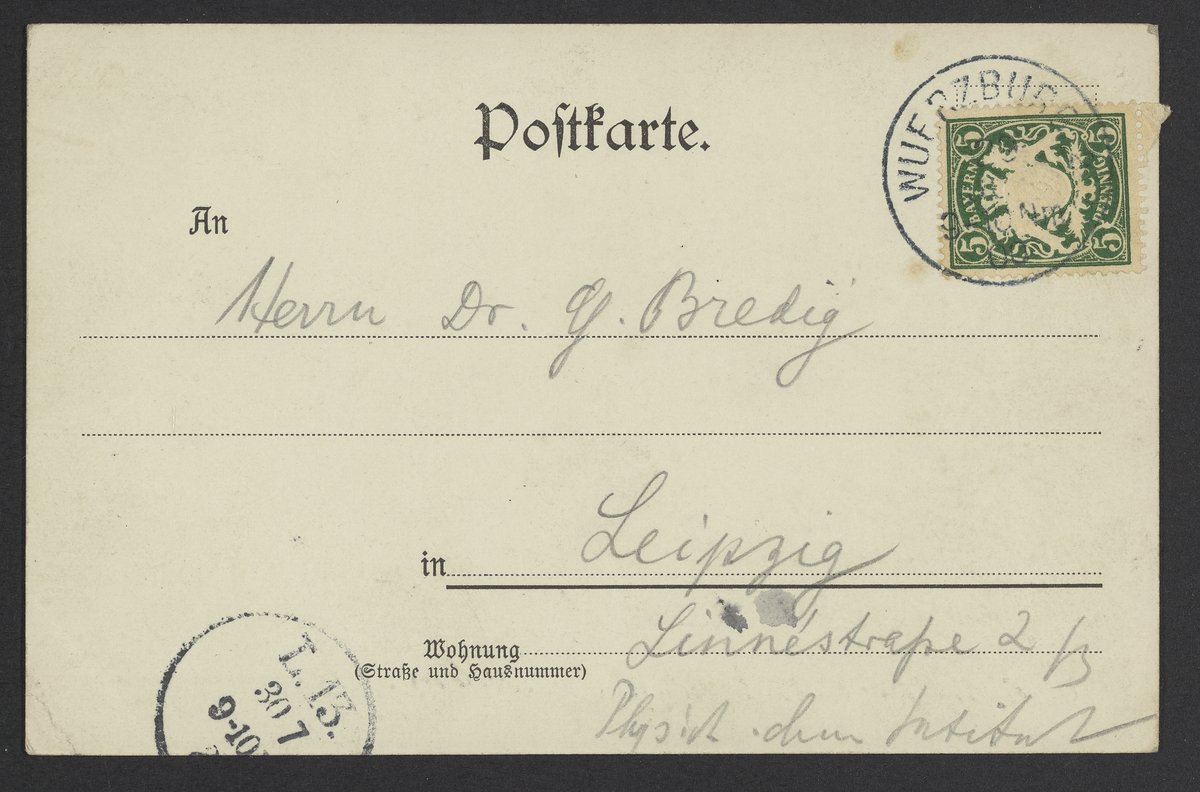 Postkarte.
WUERZBURG
5 5
BAYERN
PFENNIG
5 5
An
Herrn Dr. G. Bredig
in Leipzig
Wohnung Linnéstraße 2/3
(Straße und Hausnummer)
Physik. chem Intitut
L. 13.
30 7
9-10